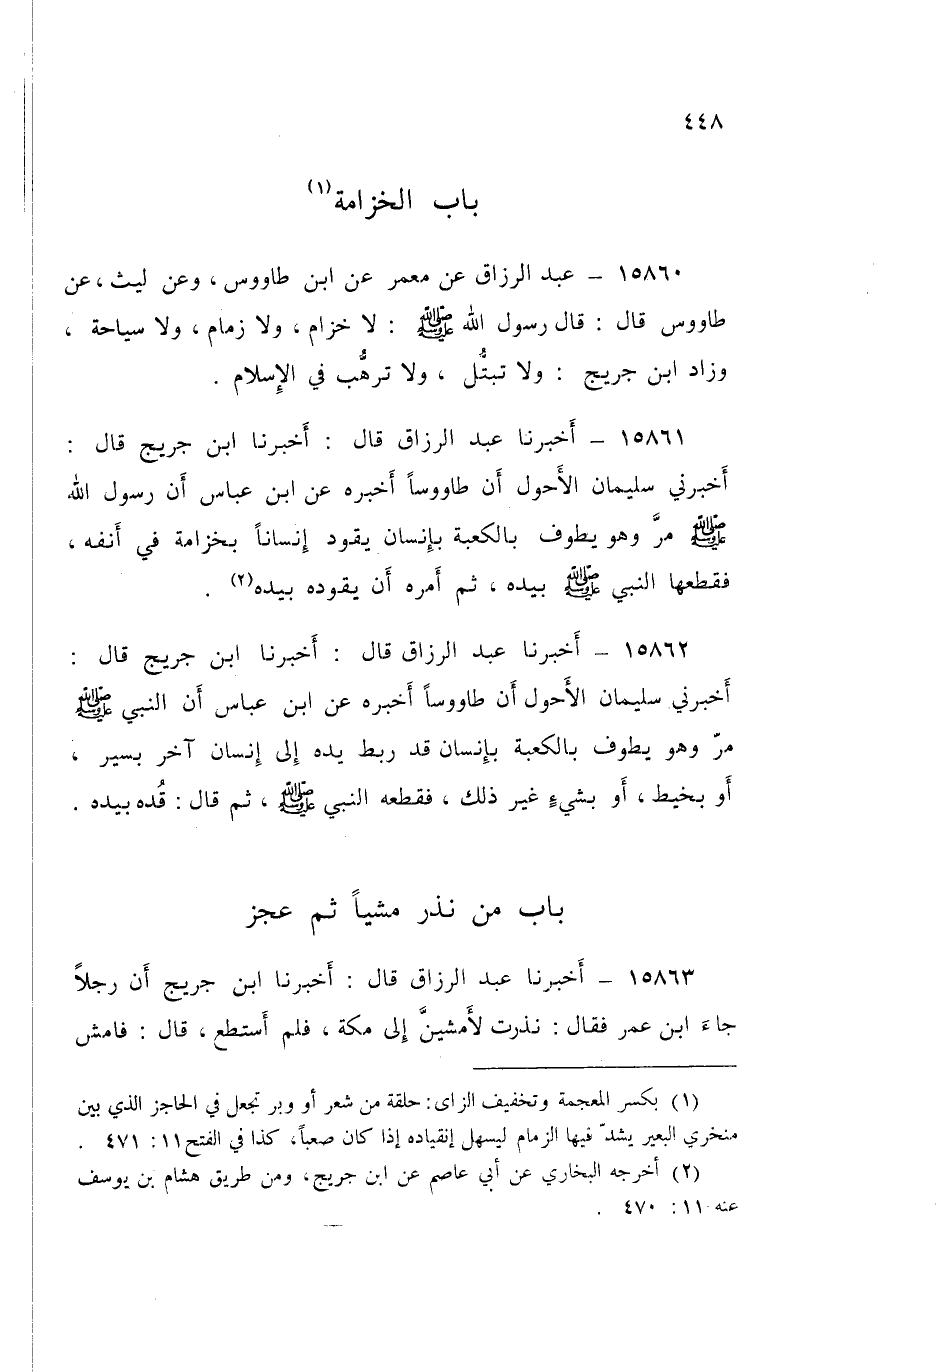 ٤٤٨
باب الخزامة(١)
١٥٨٦٠ – عبد الرزاق عن معمر عن ابن طاووس ، وعن ليث ، عن
طاووس قال : قال رسول الله ﷺ : لا خزام ، ولا زمام ، ولا سياحة ،
وزاد ابن جريج : ولا تبتُّل ، ولا ترهُّب في الإسلام .
١٥٨٦١ – أَخبرنا عبد الرزاق قال : أَخبرنا ابن جريج قال :
أَخبرني سليمان الأَحول أَن طاووساً أَخبره عن ابن عباس أَن رسول الله
ﷺ مرَّ وهو يطوف بالكعبة بإنسان يقود إنساناً بخزامة في أَنفه ،
فقطعها النبي ﷺ بيده ، ثم أَمره أَن يقوده بيده(٢) .
١٥٨٦٢ – أَخبرنا عبد الرزاق قال : أَخبرنا ابن جريج قال :
أَخبرني سليمان الأَحول أَن طاووساً أَخبره عن ابن عباس أَن النبي ﷺ
مرّ وهو يطوف بالكعبة بإنسان قد ربط يده إلى إنسان آخر بسير ،
أَو بخيط ، أَو بشيءٍ غير ذلك ، فقطعه النبي ﷺ ، ثم قال : قُده بيده .
باب من نذر مشياً ثم عجز
١٥٨٦٣ – أَخبرنا عبد الرزاق قال : أَخبرنا ابن جريج أَن رجلاً
جاءَ ابن عمر فقال : نذرت لأَمشينَّ إلى مكة ، فلم أَستطع ، قال : فامش
(١) بكسر المعجمة وتخفيف الزاى : حلقة من شعر أو وبر تجعل في الحاجز الذي بين
منخري البعير يشدّ فيها الزمام ليسهل إنقياده إذا كان صعباً، كذا في الفتح ١١ : ٤٧١ .
(٢) أخرجه البخاري عن أبي عاصم عن ابن جريج، ومن طريق هشام بن يوسف
عنه ١١ : ٤٧٠ .